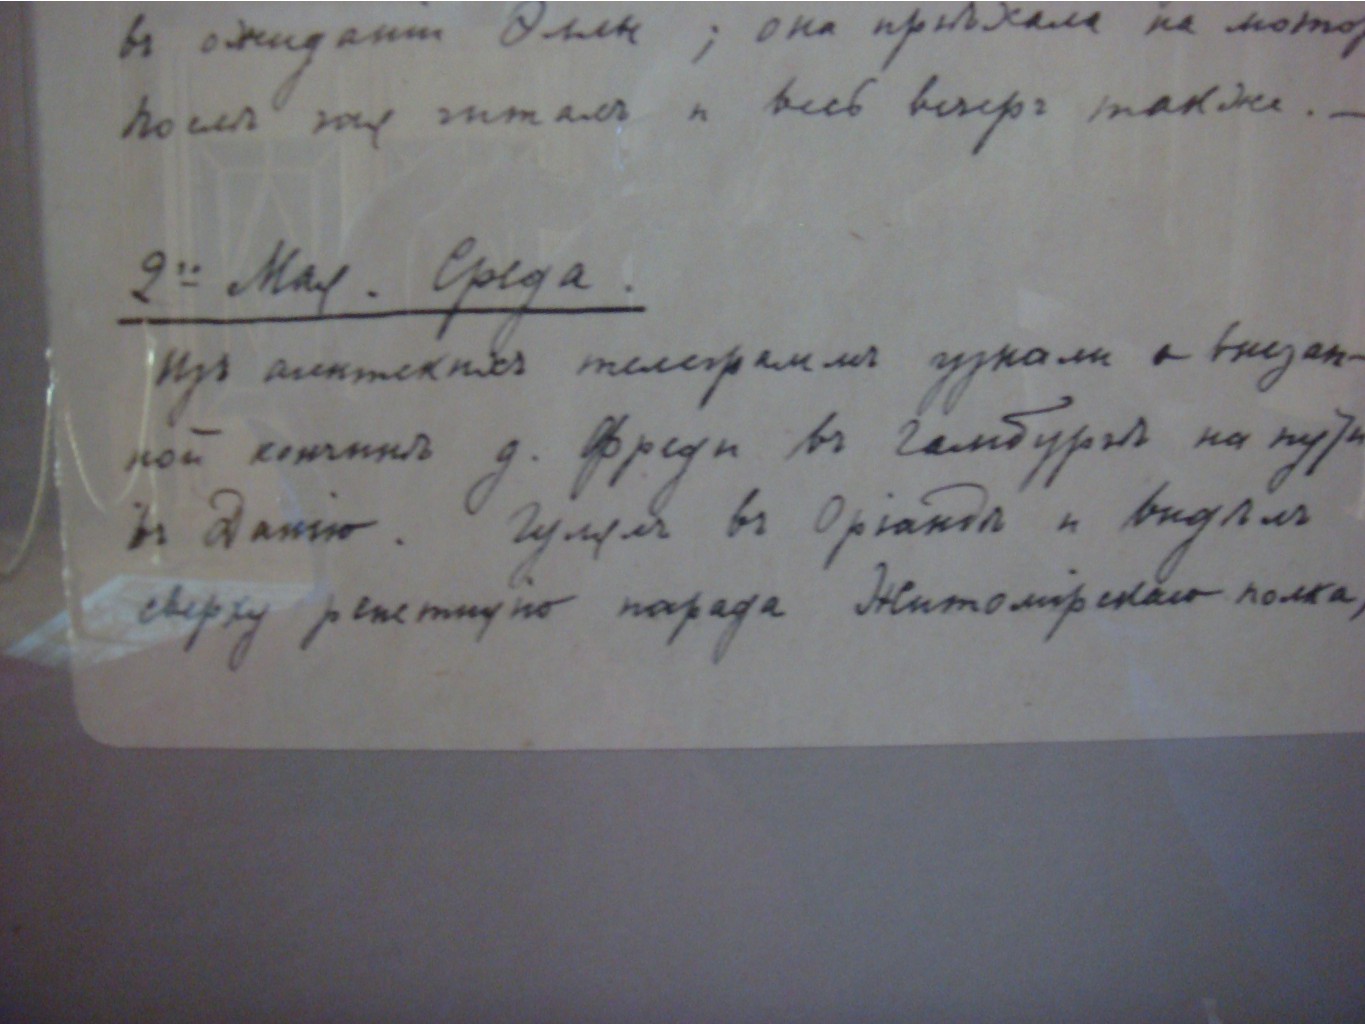 въ ожиданіи Ольги; она пріѣхала на мотор
Послѣ чая читалъ и весь вечеръ также. —
2го Мая. Среда.
Изъ агентскихъ телеграммъ узнали о внезап-
ной кончинѣ д. Фреди въ Гамбургѣ на пути
въ Данію. Гулялъ въ Оріандѣ и видѣлъ
сверху репетицію парада Житомірскаго полка,